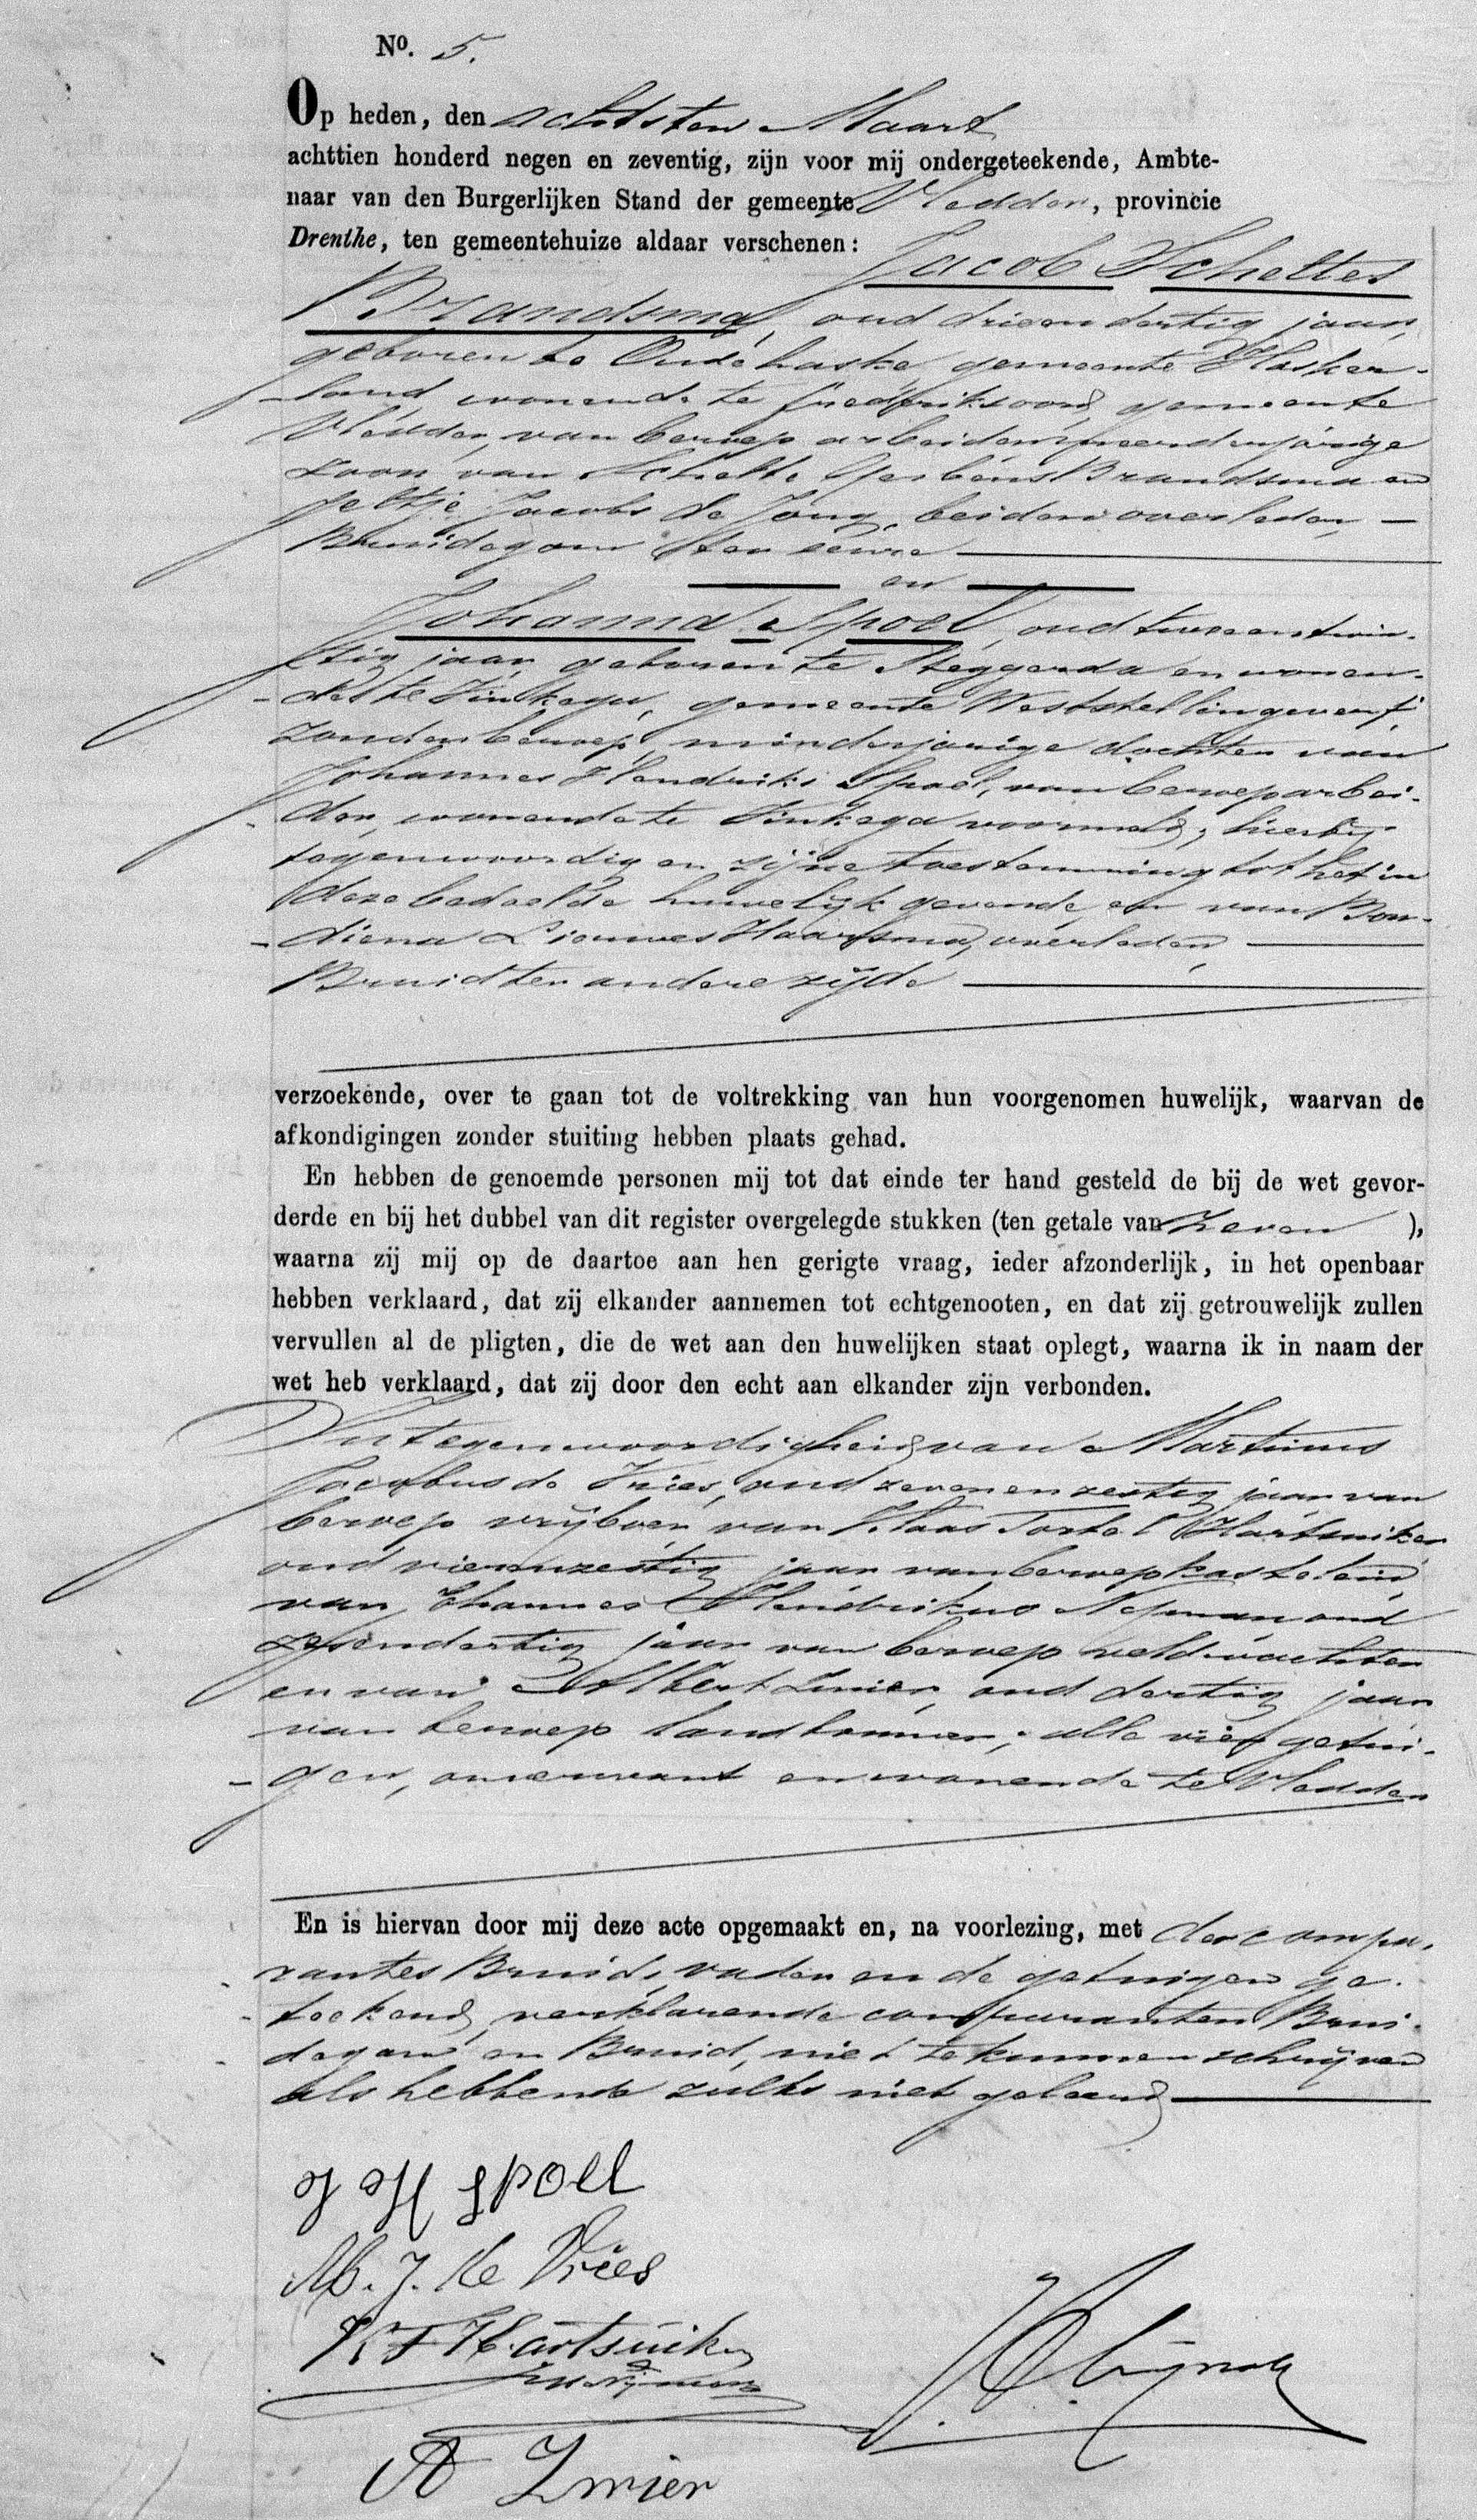 No. 5.
Op heden, den achtsten Maart
achttien honderd negen en zeventig, zijn voor mij ondergeteekende, Ambte-
naar van den Burgerlijken Stand der gemeente Vledder, provincie
Drenthe, ten gemeentehuize aldaar verschenen: Jacob Scheltes
Brandsma, oud drieendertig jaar,
geboren te Oudehaske, gemeente Hasker-
land wonende te Fredriksoord, gemeente
Vledder, van beroep arbeider, meerderjarige
zoon van Schelte Gerbens Brandsma en
Jeltje Jacobs de Jong, beiden overleden, —
Bruidegom ter eenre
en
Johanna Spoel, oud tweeentwin-
tig jaar, geboren te Steggerda en wonen-
de te Finkega, gemeente Weststellingwerf,
zonder beroep, minderjarige dochter van
Johannes Hendriks Spoel, van beroep arbei-
der, wonende te Finkega voormeld, hierbij
tegenwoordig en zijne toestemming tot het in
deze bedoelde huwelijk gevende, en van Ber-
diena Lieuwes Haarsma, overleden,
Bruid ter andere zijde
verzoekende, over te gaan tot de voltrekking van hun voorgenomen huwelijk, waarvan de
afkondigingen zonder stuiting hebben plaats gehad.
En hebben de genoemde personen mij tot dat einde ter hand gesteld de bij de wet gevor-
derde en bij het dubbel van dit register overgelegde stukken (ten getale van zeven ),
waarna zij mij op de daartoe aan hen gerigte vraag, ieder afzonderlijk, in het openbaar
hebben verklaard, dat zij elkander aannemen tot echtgenooten, en dat zij getrouwelijk zullen
vervullen al de pligten, die de wet aan den huwelijken staat oplegt, waarna ik in naam der
wet heb verklaard, dat zij door den echt aan elkander zijn verbonden.
In tegenwoordigheid van Martinus
Jacobus de Vries, oud zevenenzestig jaar van
beroep vrijboer, van Klaas Hartsuiker
oud vierenzestig jaar van beroep kastelein
van Johannes Hendrikus Nijman oud
zesendertig jaar van beroep veldwachter
en van Albert Zwier, oud dertig jaar
van beroep landbouwer, alle vier getui-
gen, onverwant en wonende te Vledder
En is hiervan door mij deze acte opgemaakt en, na voorlezing, met der compa-
rantes Bruids vader en de getuigen ge-
teekend, verklarende comparanten Brui-
degom en Bruid, niet te kunnen schrijven
als hebbende zulks niet geleerd
J H Spoel
M. J. de Vries
K F Hartsuiker
JH Nijman
A Zwier